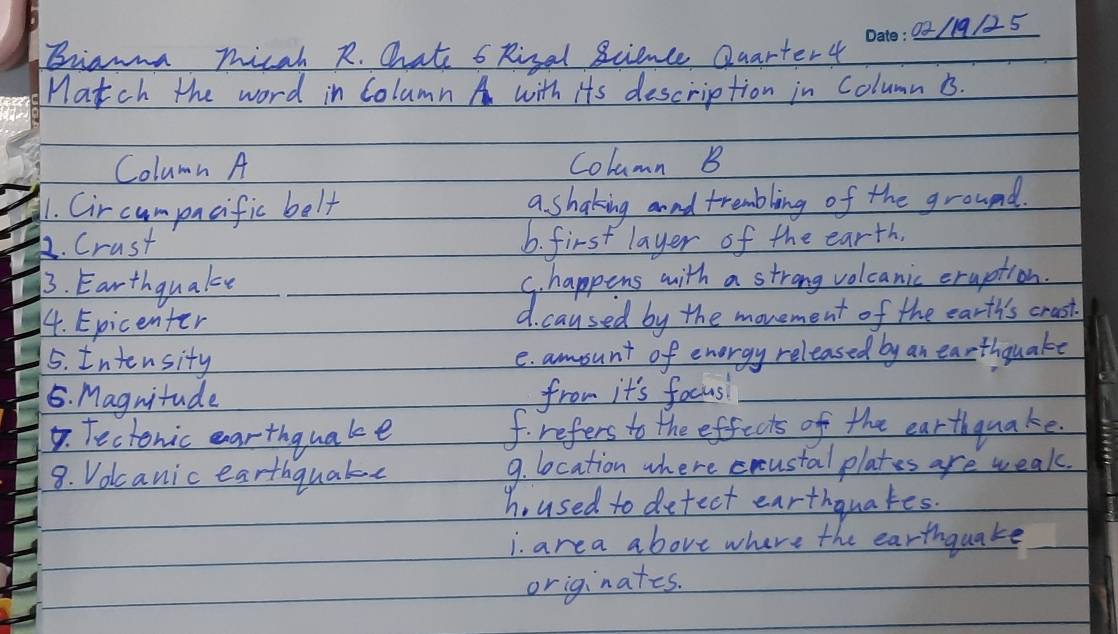 Date: 02/19/25
Brianna Micah R. Oñate 6 Rizal Science Quarter 4
Match the word in Column A with its description in Column B.
Column A Column B
1. Circumpacific belt a. shaking and trembling of the ground.
2. Crust b. first layer of the earth.
3. Earthquake c. happens with a strong volcanic eruption.
4. Epicenter d. caused by the movement of the earth's crust.
5. Intensity e. amount of energy released by an earthquake
6. Magnitude from it's focus.
7. Tectonic earthquake f. refers to the effects of the earthquake.
8. Volcanic earthquake g. location where crustal plates are weak.
h. used to detect earthquakes.
i. area above where the earthquake
originates.